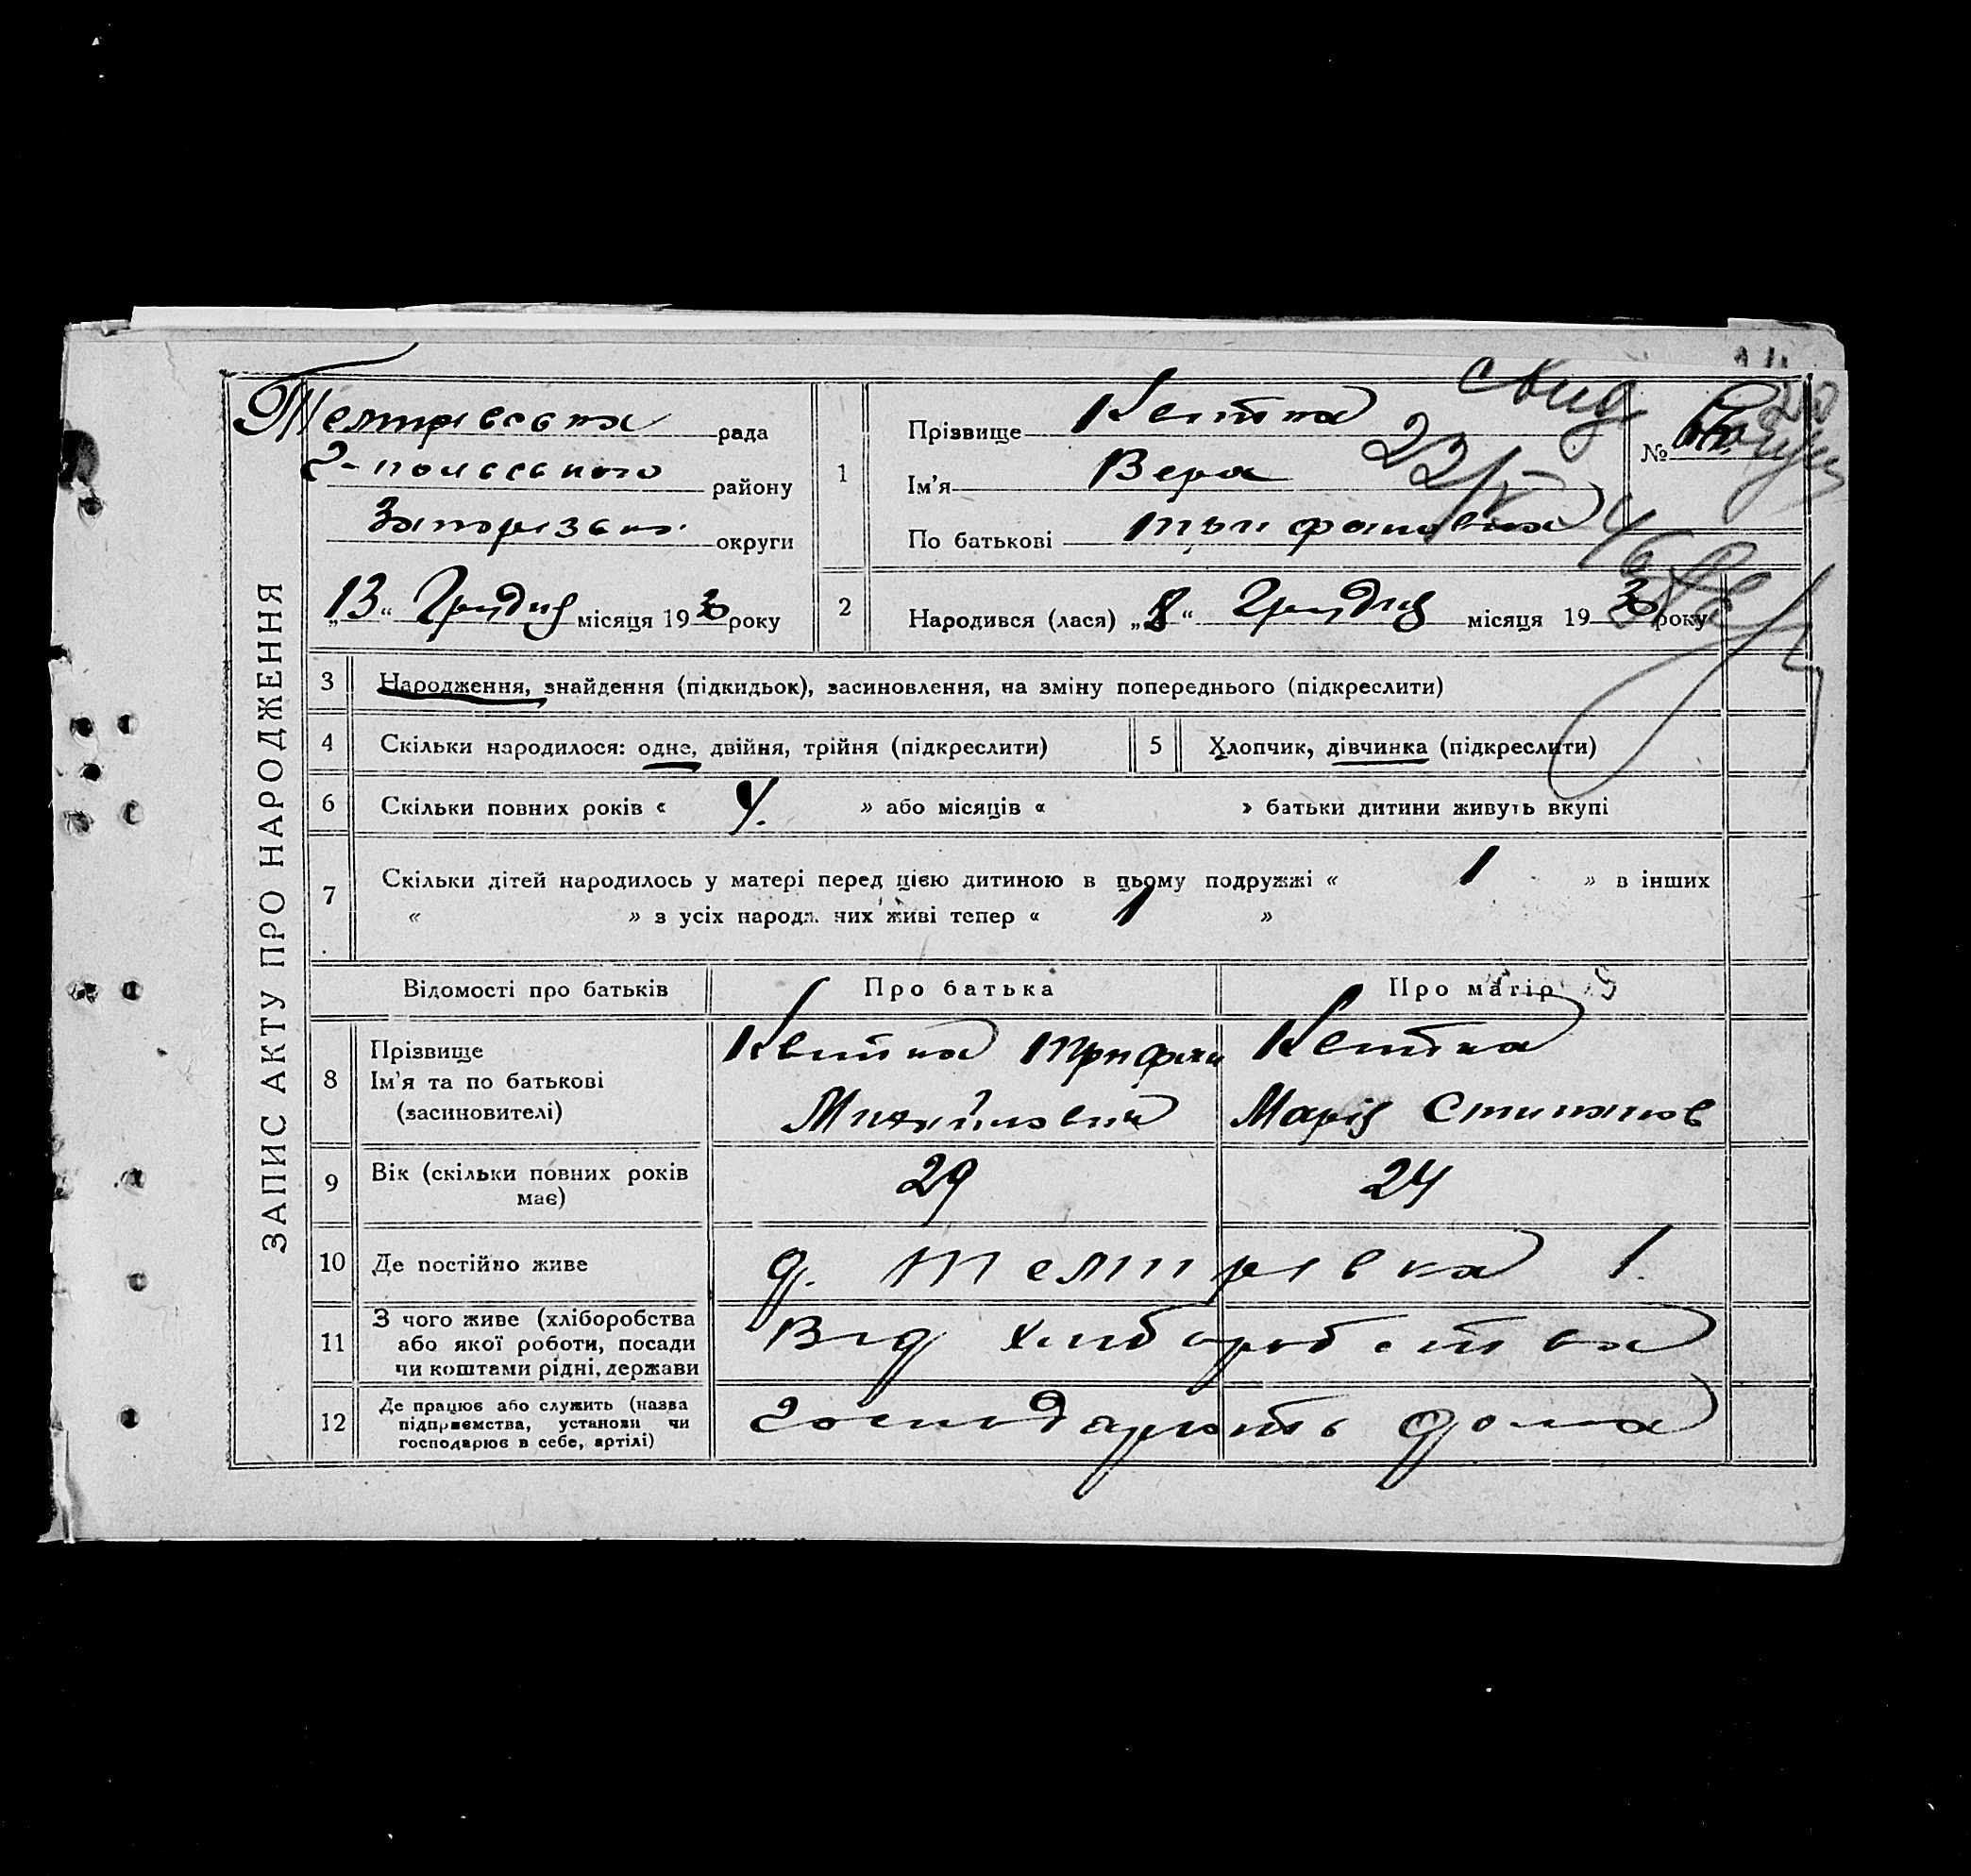 ЗАПИС АКТУ ПРО НАРОДЖЕННЯ
Темирівська рада
Г-польського району
Запорізької округи
„13“ Грудня місяця 1930 року
1 Прізвище Квитка
Ім'я Вера
По батькові Трифановна
№
2 Народився (лася) „8“ Грудня місяця 1930 року
3 Народження, знайдення (підкидьок), засиновлення, на зміну попереднього (підкреслити)
4 Скільки народилося: одне, двійня, трійня (підкреслити)
5 Хлопчик, дівчинка (підкреслити)
6 Скільки повних років « 4. » або місяців « » батьки дитини живуть вкупі
7 Скільки дітей народилось у матері перед цією дитиною в цьому подружжі « 1 » в інших
« » з усіх народж. них живі тепер « 1 »
Відомості про батьків Про батька Про матір
8 Прізвище
Ім'я та по батькові
(засиновителі)
Квитка Трифан
Михайлович
Квитка
Марія Степанов
9 Вік (скільки повних років
має)
29 24
10 Де постійно живе
д. Темирівка 1.
11 З чого живе (хліборобства
або якої роботи, посади
чи коштами рідні, держави
Від хліборобства
12 Де працює або служить (назва
підприємства, установи чи
господарює в себе, артілі)
Господарють дома